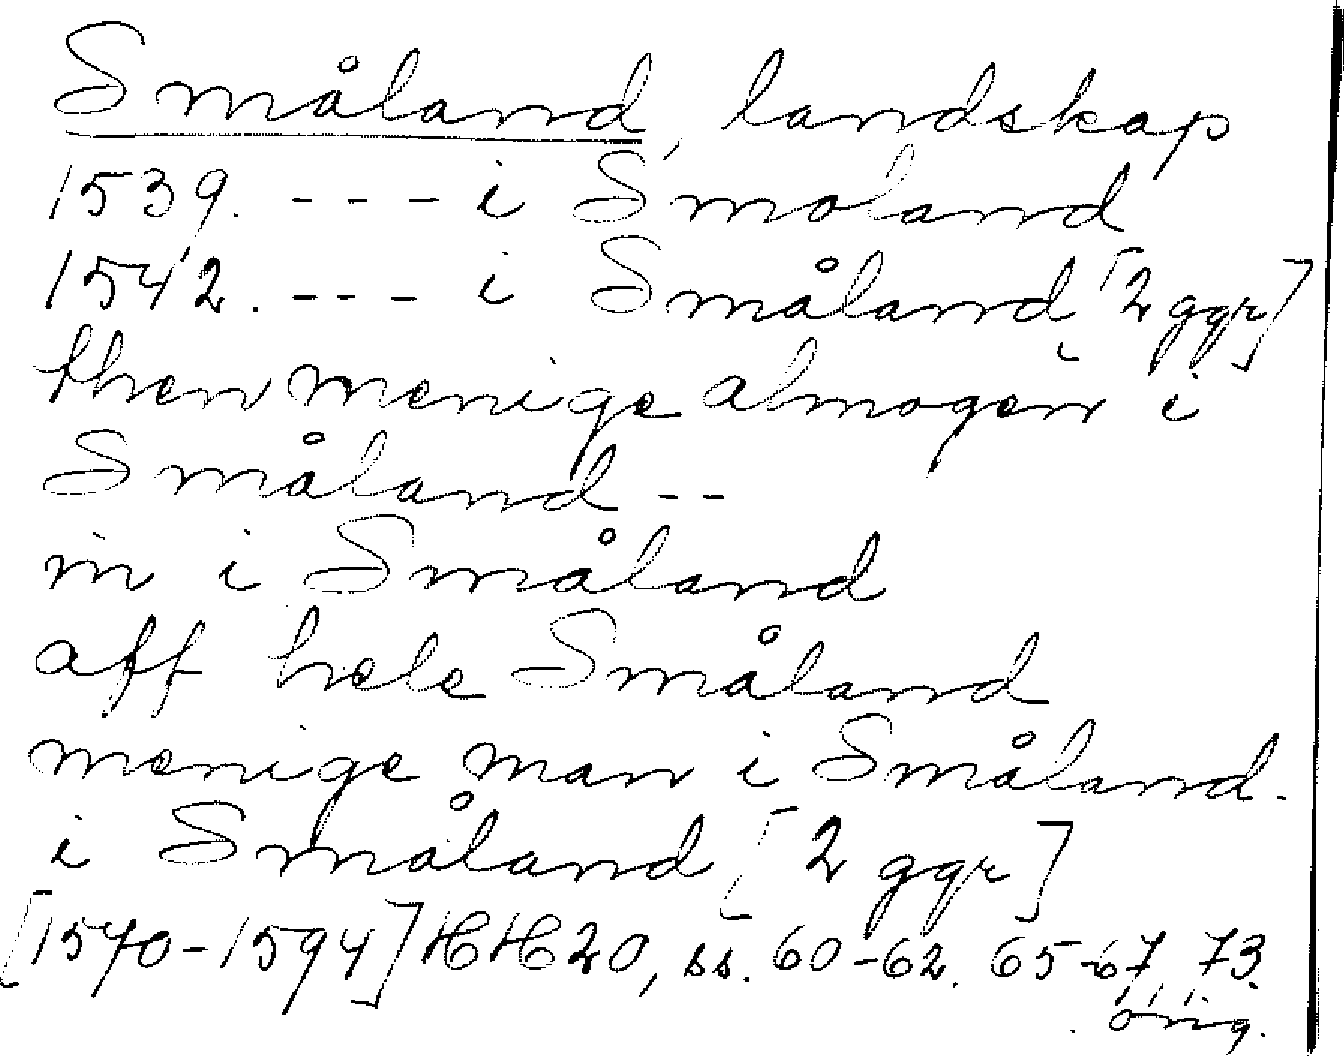 Småland, landskap
1539. - - - i Smoland
1542. - - - i Småland [2 ggr]
then menige almogen i
Småland - -
in i Småland
aff hele Småland
menige man i Småland.
i Småland [2 ggr]
[1570-1594] HH 20, ss. 60-62. 65-67, 73.
orig.